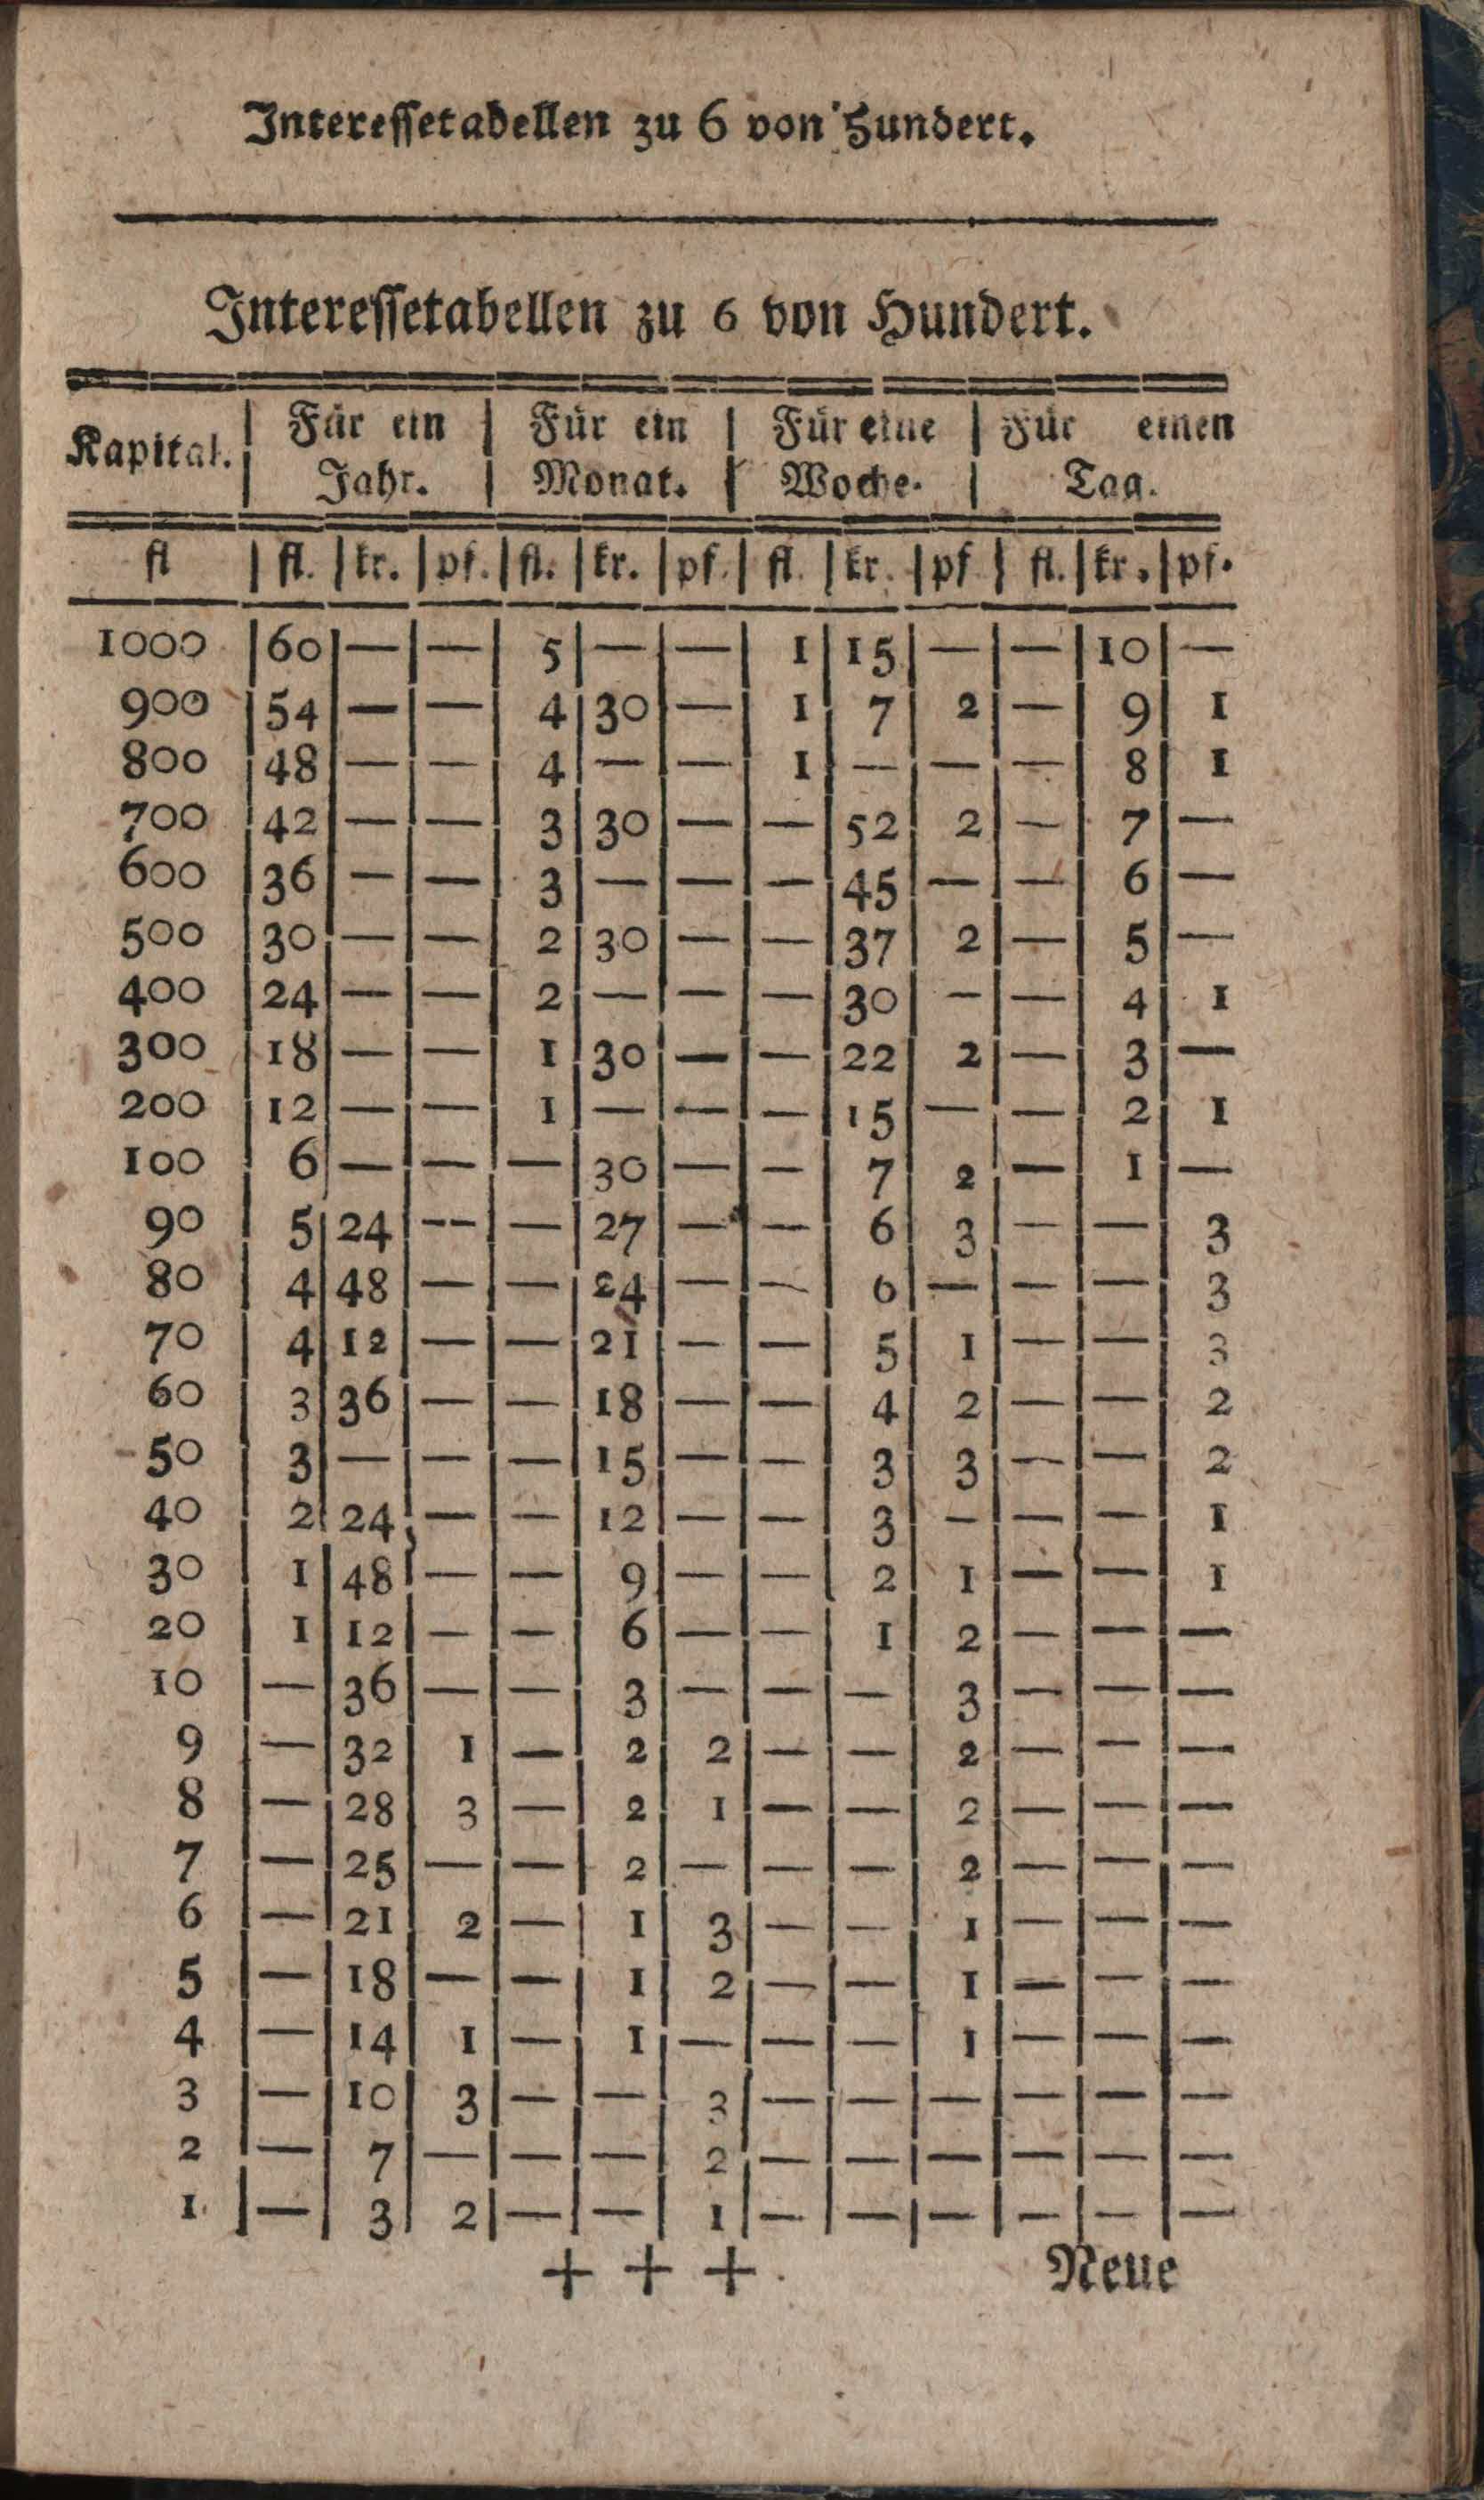 Interessetadellen zu 6 von Hundert.
Interessetabellen zu 6 von Hundert.
Kapital. | Für ein Jahr. | Für ein Monat. | Für eine Woche. | Für einen Tag.
fl | fl. | kr. | pf. | fl. | kr. | pf. | fl. | kr. | pf | fl. | kr. | pf.
1000 | 60 | — | — | 5 | — | — | 1 | 15 | — | — | 10 | —
900 | 54 | — | — | 4 | 30 | — | 1 | 7 | 2 | — | 9 | 1
800 | 48 | — | — | 4 | — | — | 1 | — | — | — | 8 | 1
700 | 42 | — | — | 3 | 30 | — | — | 52 | 2 | — | 7 | —
600 | 36 | — | — | 3 | — | — | — | 45 | — | — | 6 | —
500 | 30 | — | — | 2 | 30 | — | — | 37 | 2 | — | 5 | —
400 | 24 | — | — | 2 | — | — | — | 30 | — | — | 4 | 1
300 | 18 | — | — | 1 | 30 | — | — | 22 | 2 | — | 3 | —
200 | 12 | — | — | 1 | — | — | — | 15 | — | — | 2 | 1
100 | 6 | — | — | — | 30 | — | — | 7 | 2 | — | 1 | —
90 | 5 | 24 | — | — | 27 | — | — | 6 | 3 | — | — | 3
80 | 4 | 48 | — | — | 24 | — | — | 6 | — | — | — | 3
70 | 4 | 12 | — | — | 21 | — | — | 5 | 1 | — | — | 3
60 | 3 | 36 | — | — | 18 | — | — | 4 | 2 | — | — | 2
50 | 3 | — | — | — | 15 | — | — | 3 | 3 | — | — | 2
40 | 2 | 24 | — | — | 12 | — | — | 3 | — | — | — | 1
30 | 1 | 48 | — | — | 9 | — | — | 2 | 1 | — | — | 1
20 | 1 | 12 | — | — | 6 | — | — | 1 | 2 | — | — | —
10 | — | 36 | — | — | 3 | — | — | — | 3 | — | — | —
9 | — | 32 | 1 | — | 2 | 2 | — | — | 2 | — | — | —
8 | — | 28 | 3 | — | 2 | 1 | — | — | 2 | — | — | —
7 | — | 25 | — | — | 2 | — | — | — | 2 | — | — | —
6 | — | 21 | 2 | — | 1 | 3 | — | — | 1 | — | — | —
5 | — | 18 | — | — | 1 | 2 | — | — | 1 | — | — | —
4 | — | 14 | 1 | — | 1 | — | — | — | 1 | — | — | —
3 | — | 10 | 3 | — | — | 3 | — | — | — | — | — | —
2 | — | 7 | — | — | — | 2 | — | — | — | — | — | —
1 | — | 3 | 2 | — | — | 1 | — | — | — | — | — | —
+ + + Neue